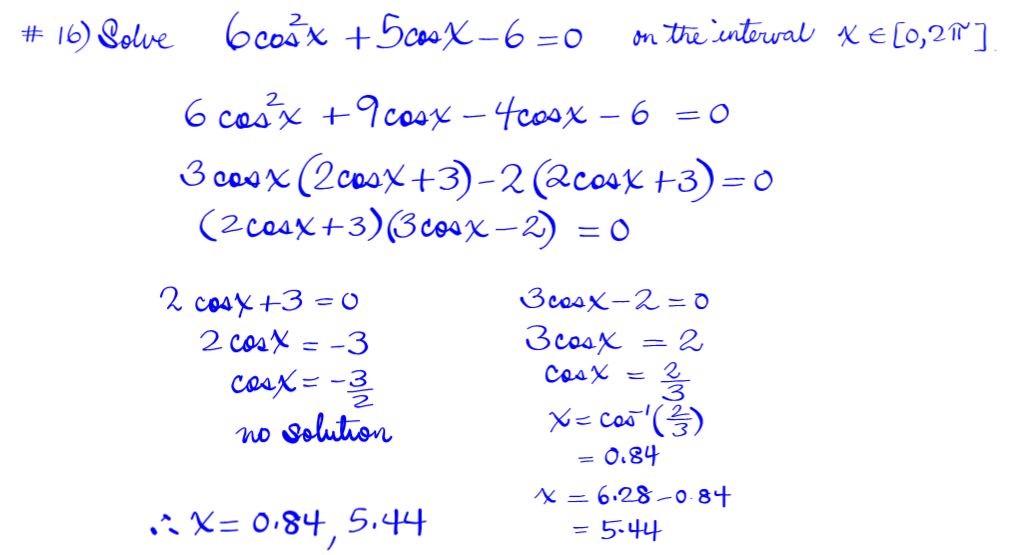 # 16) Solve 6cos²x + 5cosx - 6 = 0 on the interval x ∈ [0, 2π].
6 cos²x + 9cosx - 4cosx - 6 = 0
3 cosx (2cosx + 3) - 2 (2cosx + 3) = 0
(2cosx + 3)(3cosx - 2) = 0
2 cosx + 3 = 0
2 cosx = -3
cosx = -3/2
no solution
3cosx - 2 = 0
3cosx = 2
cosx = 2/3
x = cos⁻¹(2/3)
= 0.84
x = 6.28 - 0.84
= 5.44
∴ x = 0.84, 5.44